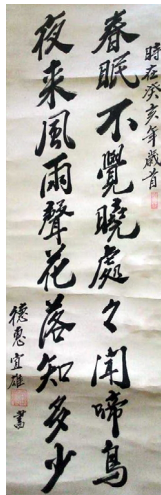 時在癸亥年歲首
春眠不覺曉處々聞啼鳥
夜来風雨聲花落知多少
德惠宜雄書